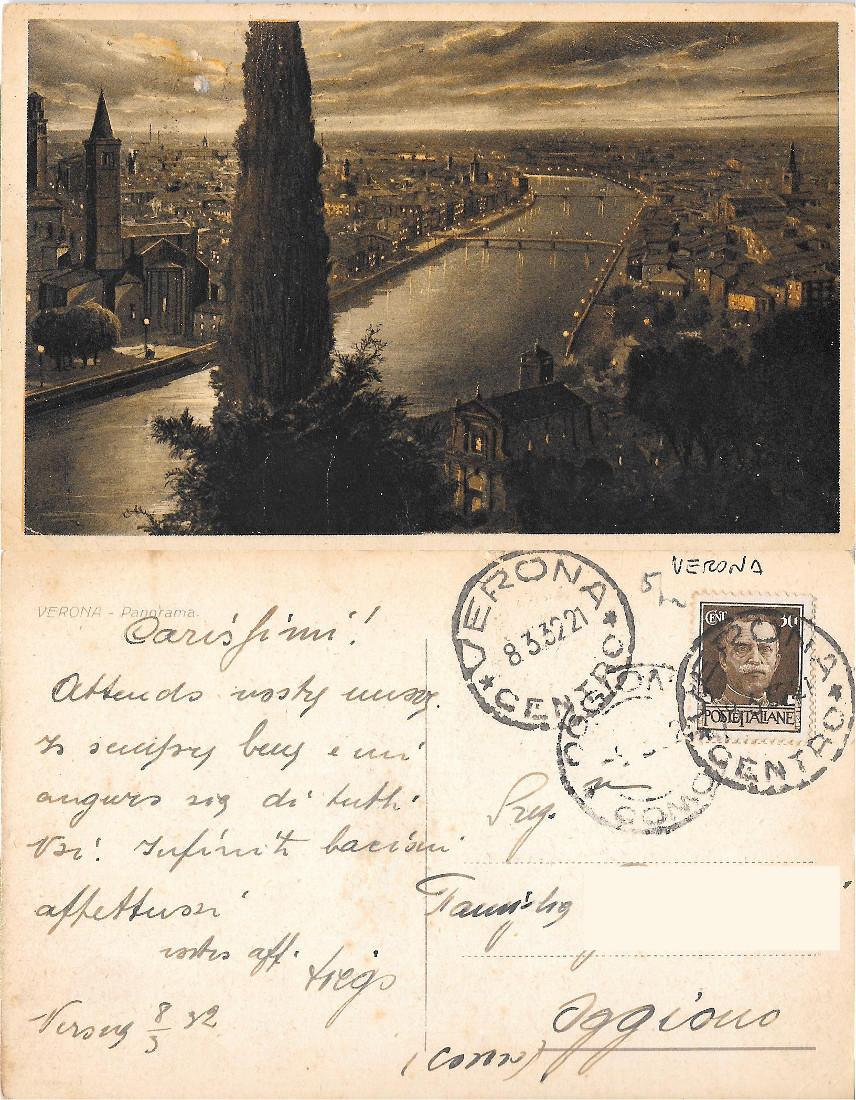 VERONA
VERONA - Panorama.
Carissimi!
Attendo vostre nuove.
Io sempre bene e mi
auguro sia di tutti
Voi. Infiniti bacioni
affettuosi
vostro aff.
Verona 8/3 32
VERONA CENTRO
8.3.32 21
OGGIONO COMO
CENT 30
POSTE ITALIANE
VERONA CENTRO
Preg.
Famiglia
Oggiono
(Como)